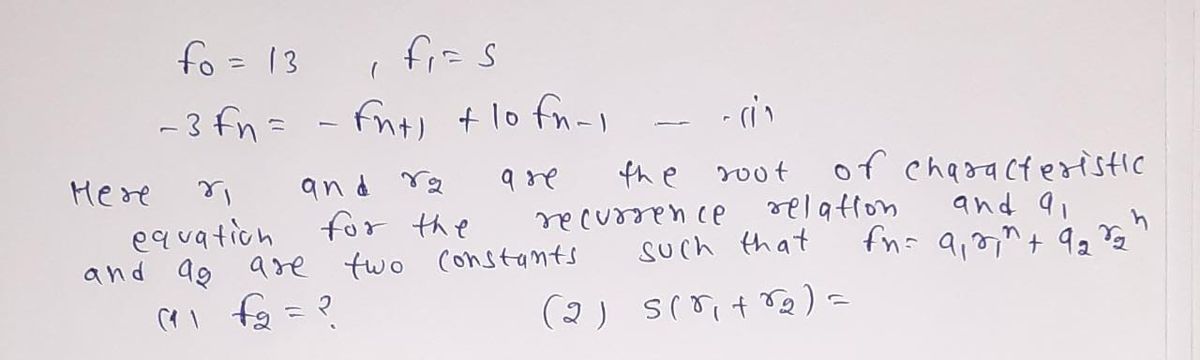 f₀ = 13 , f₁ = 5
-3 fₙ = - fₙ₊₁ + 10 fₙ₋₁ — - (i)
Here r₁ and r₂ are the root of characteristic
equation for the recurrence relation and a₁
and a₂ are two constants such that fₙ = a₁r₁ⁿ + a₂r₂ⁿ
(1) f₂ = ? (2) 5(r₁ + r₂) =